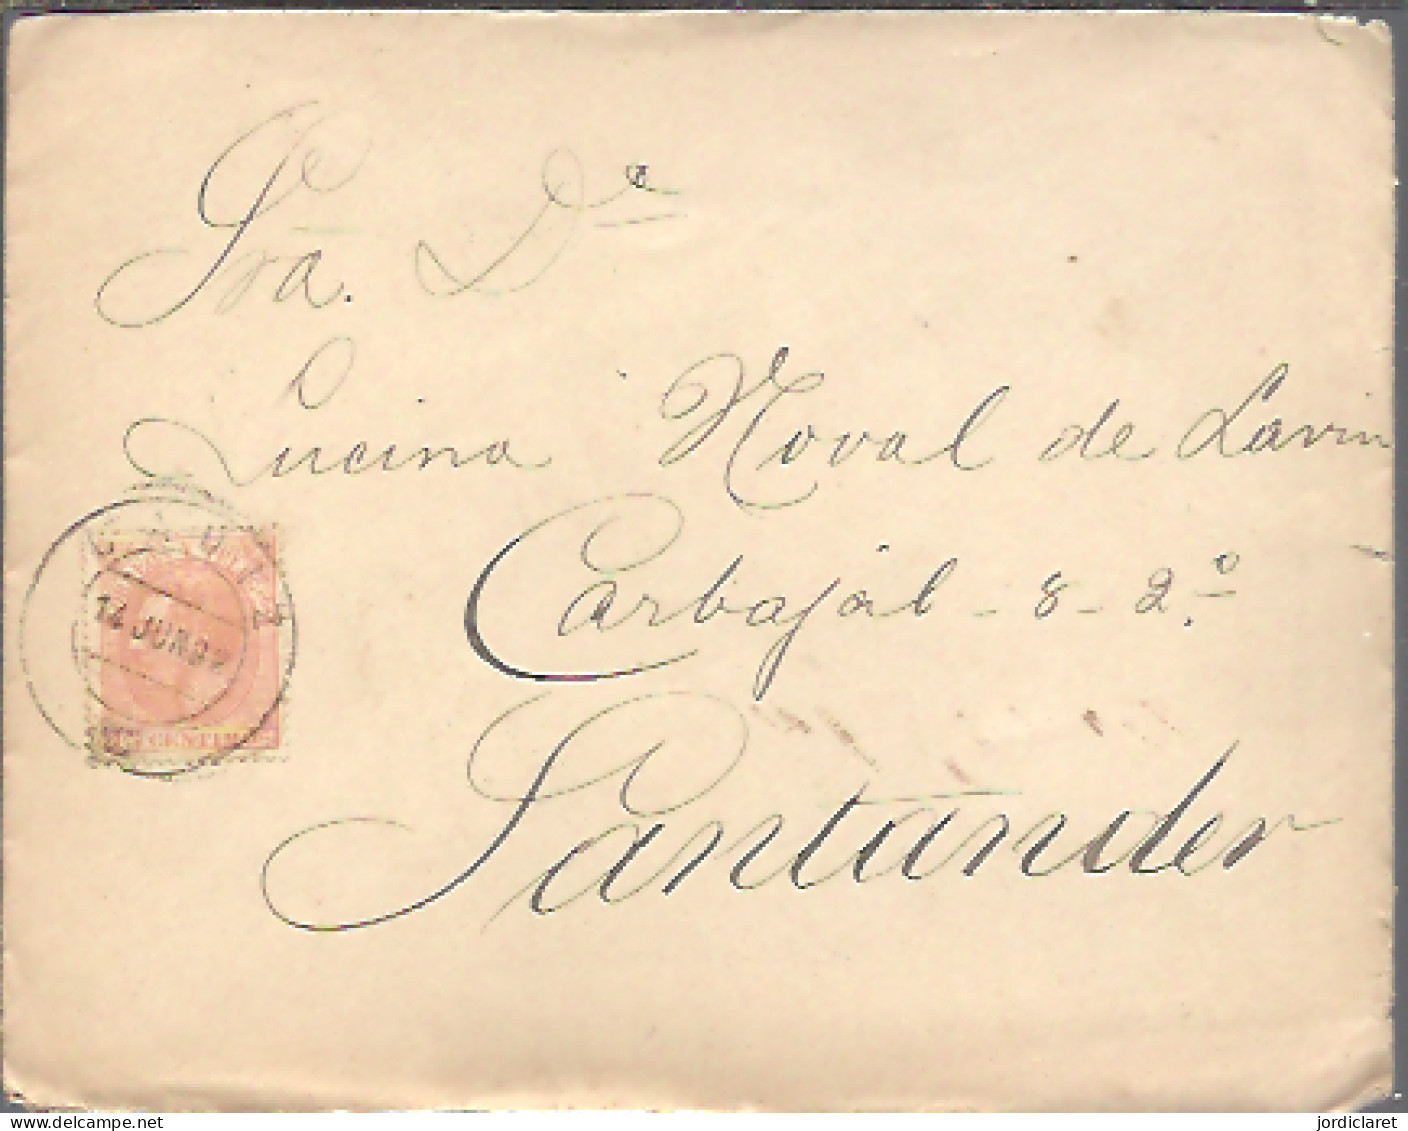 Sra. Dª
Lucina Noval de Lavin
Carbajal - 8 - 2.º
Santander
14 JUN 92
15 CENTIMOS
jordiclaret